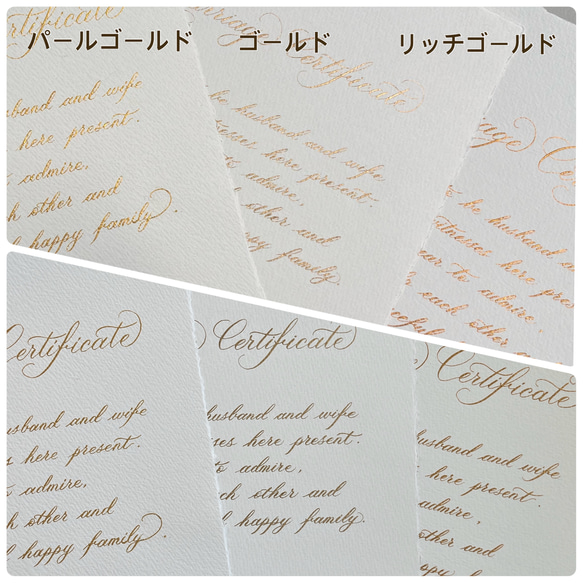 パールゴールド
ゴールド
リッチゴールド
Certificate
usband and wife
here present.
admire,
h other and
happy family.
rriage Certificate
be husband and wife
here present.
to admire,
other and
family.
age Ce
to be husband a
itnesses here pres
to admire,
each other a
Certificate
usband and wife
here present.
admire,
h other and
happy family.
Certificate
husband and wife
ses here present.
to admire,
ch other and
happy family.
Certificate
husband and wife
here present.
admire,
other and
happy